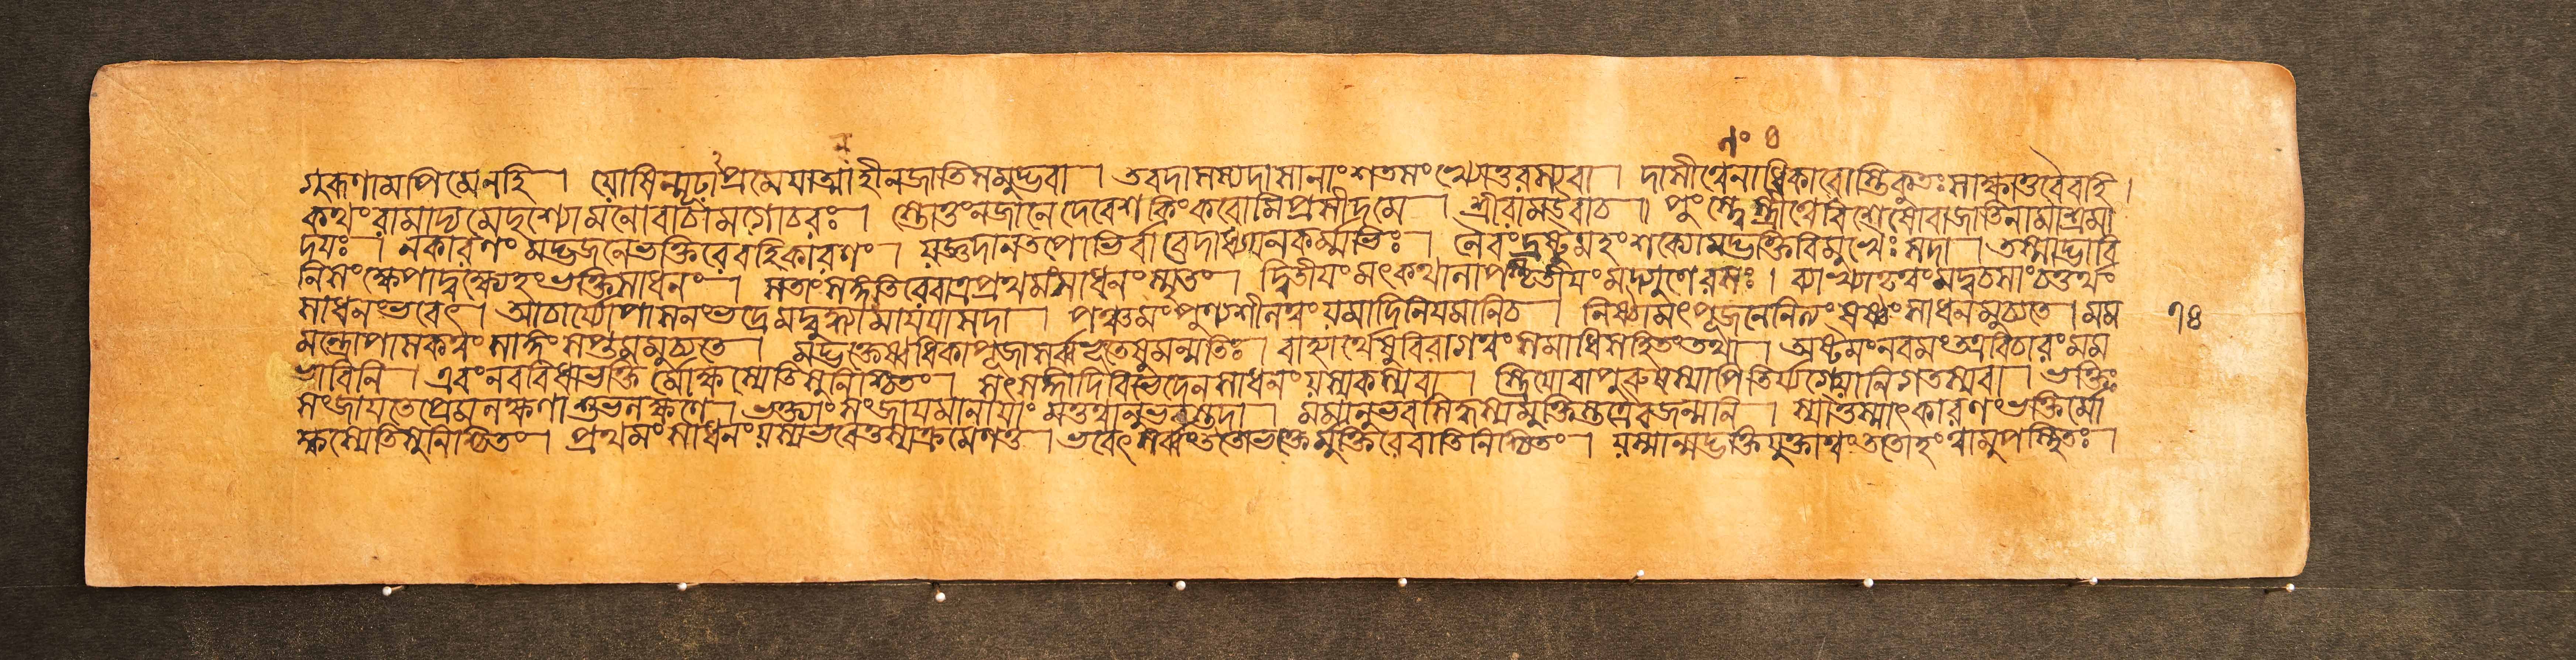 গুরুণামপি মেনহি । যোষিন্মূঢাপ্রমেযাত্মাহীনজাতিসমুদ্ভবা । তবদাসস্যদাসানাংশতসংখ্যোত্তরস্যবা । দাসীত্বেনাধিকারোস্তিকুতঃসাক্ষাত্তবৈবহি ।
কথংরামাদ্যমেদৃশ্যোমনোবাচামগোচরঃ । স্তোতুংনজানেদেবেশকিংকরোমিপ্রসীদমে । শ্রীরামউবাচ ॥ পুংস্ত্বেস্ত্রীত্বেবিশেষোবাজাতিনামাশ্রমা
দয়ঃ । নকারণংমদ্ভজনেভক্তিরেবহিকারণং । যজ্ঞদানতপোভির্বাবেদাধ্যয়নকর্ম্মভিঃ । নৈবংদ্রষ্টুমহংশক্যোমদ্ভক্তিবিমুখৈঃসদা । তস্মাদ্ভাবি
নিসংক্ষেপাদ্বক্ষ্যেহংভক্তিসাধনং । সতাংসঙ্গতিরেবাত্রপ্রথমংসাধনংস্মৃতং । দ্বিতীয়ংমৎকথালাপস্তৃতীয়ংমদ্গুণেরসঃ । ব্যাখ্যাতৃত্বংমদ্বচসাংচতুর্থং
সাধনংভবেৎ । আচার্য্যোপাসনংভদ্রেমদ্বুদ্ধ্যামায়য়াসদা । পঞ্চমংপুণ্যশীলত্বংয়মাদিনিয়মানিচ । নিষ্ঠামৎপূজনেনিত্যংষষ্ঠংসাধনমুচ্যতে । মম
মন্ত্রোপাসকত্বংসাঙ্গংসপ্তমমুচ্যতে । মদ্ভক্তেষ্বধিকাপূজাসর্ব্বভূতেষুমন্মতিঃ । বাহ্যার্থেষুবিরাগত্বংসমাধিসহিতংতথা । অষ্টমংনবমংতত্ত্ববিচারংমম
ভাবিনি । এবংনববিধাভক্তি
সংজায়তেপ্রেমলক্ষণাশুভলক্ষণে । ভক্ত্যাংসংজায়মানায়াংমত্তত্বানুভবস্তদা । মমানুভবসিদ্ধস্যমুক্তিস্তত্রৈবজন্মনি । স্যাত্তস্মাৎকারণংভক্তির্মো
ক্ষস্যেতিসুনিশ্চিতং । প্রথমংসাধনংয়স্যভবেত্তস্যক্রমেণতু । ভবেৎসর্ব্বংততোভক্তির্মুক্তিরেবাতিনিশ্চিতং । য়স্মান্মদ্ভক্তিযুক্তাত্বংততোহংত্বামুপস্থিতঃ ।